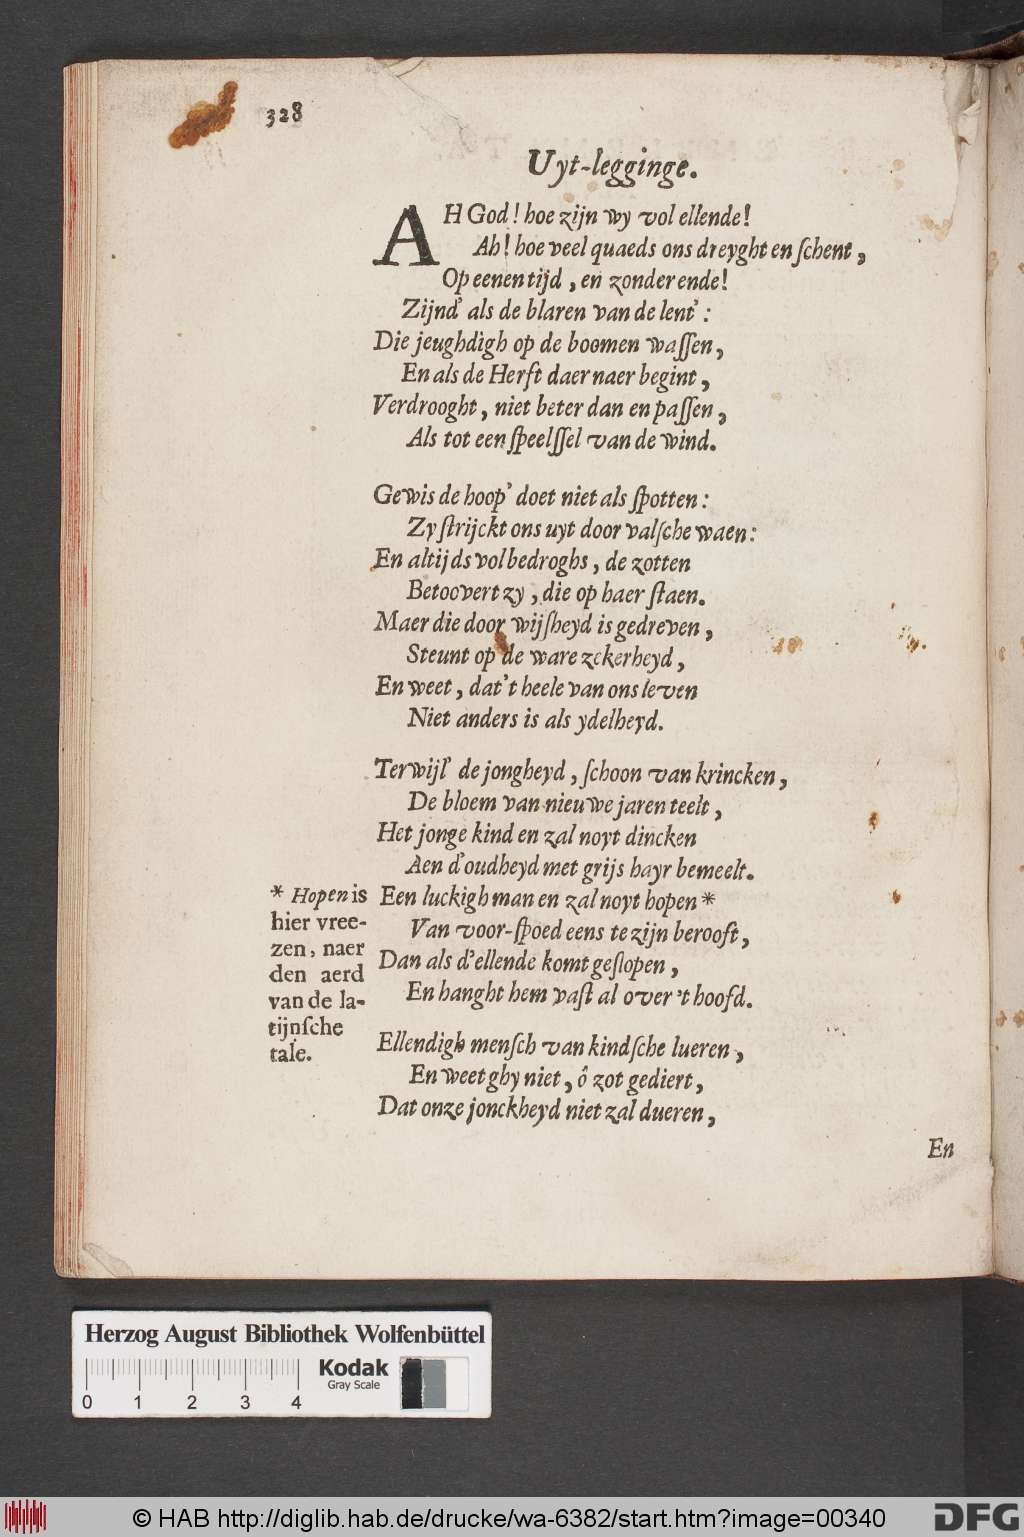 328
Uyt-legginge.
AH God! hoe zijn wy vol ellende!
Ah! hoe veel quaeds ons dreyght en ſchent,
Op eenen tijd, en zonder ende!
Zijnd' als de blaren van de lent':
Die jeughdigh op de boomen waſſen,
En als de Herfſt daer naer begint,
Verdrooght, niet beter dan en paſſen,
Als tot een ſpeelſſel van de wind.
Gewis de hoop' doet niet als ſpotten:
Zy ſtrijckt ons uyt door valſche waen:
En altijds vol bedroghs, de zotten
Betoovert zy, die op haer ſtaen.
Maer die door wijſheyd is gedreven,
Steunt op de ware zekerheyd,
En weet, dat't heele van ons leven
Niet anders is als ydelheyd.
Terwijl' de jongheyd, ſchoon van krincken,
De bloem van nieuwe jaren teelt,
Het jonge kind en zal noyt dincken
Aen d'oudheyd met grijs hayr bemeelt.
Een luckigh man en zal noyt hopen*
Van voor-ſpoed eens te zijn berooft,
Dan als d'ellende komt geſlopen,
En hanght hem vaſt al over 't hoofd.
* Hopen is
hier vree-
zen, naer
den aerd
van de la-
tijnſche
tale.
Ellendigh menſch van kindſche lueren,
En weet ghy niet, ô zot gediert,
Dat onze jonckheyd niet zal dueren,
En
Herzog August Bibliothek Wolfenbüttel
Kodak
Gray Scale
0 1 2 3 4
© HAB http://diglib.hab.de/drucke/wa-6382/start.htm?image=00340
DFG